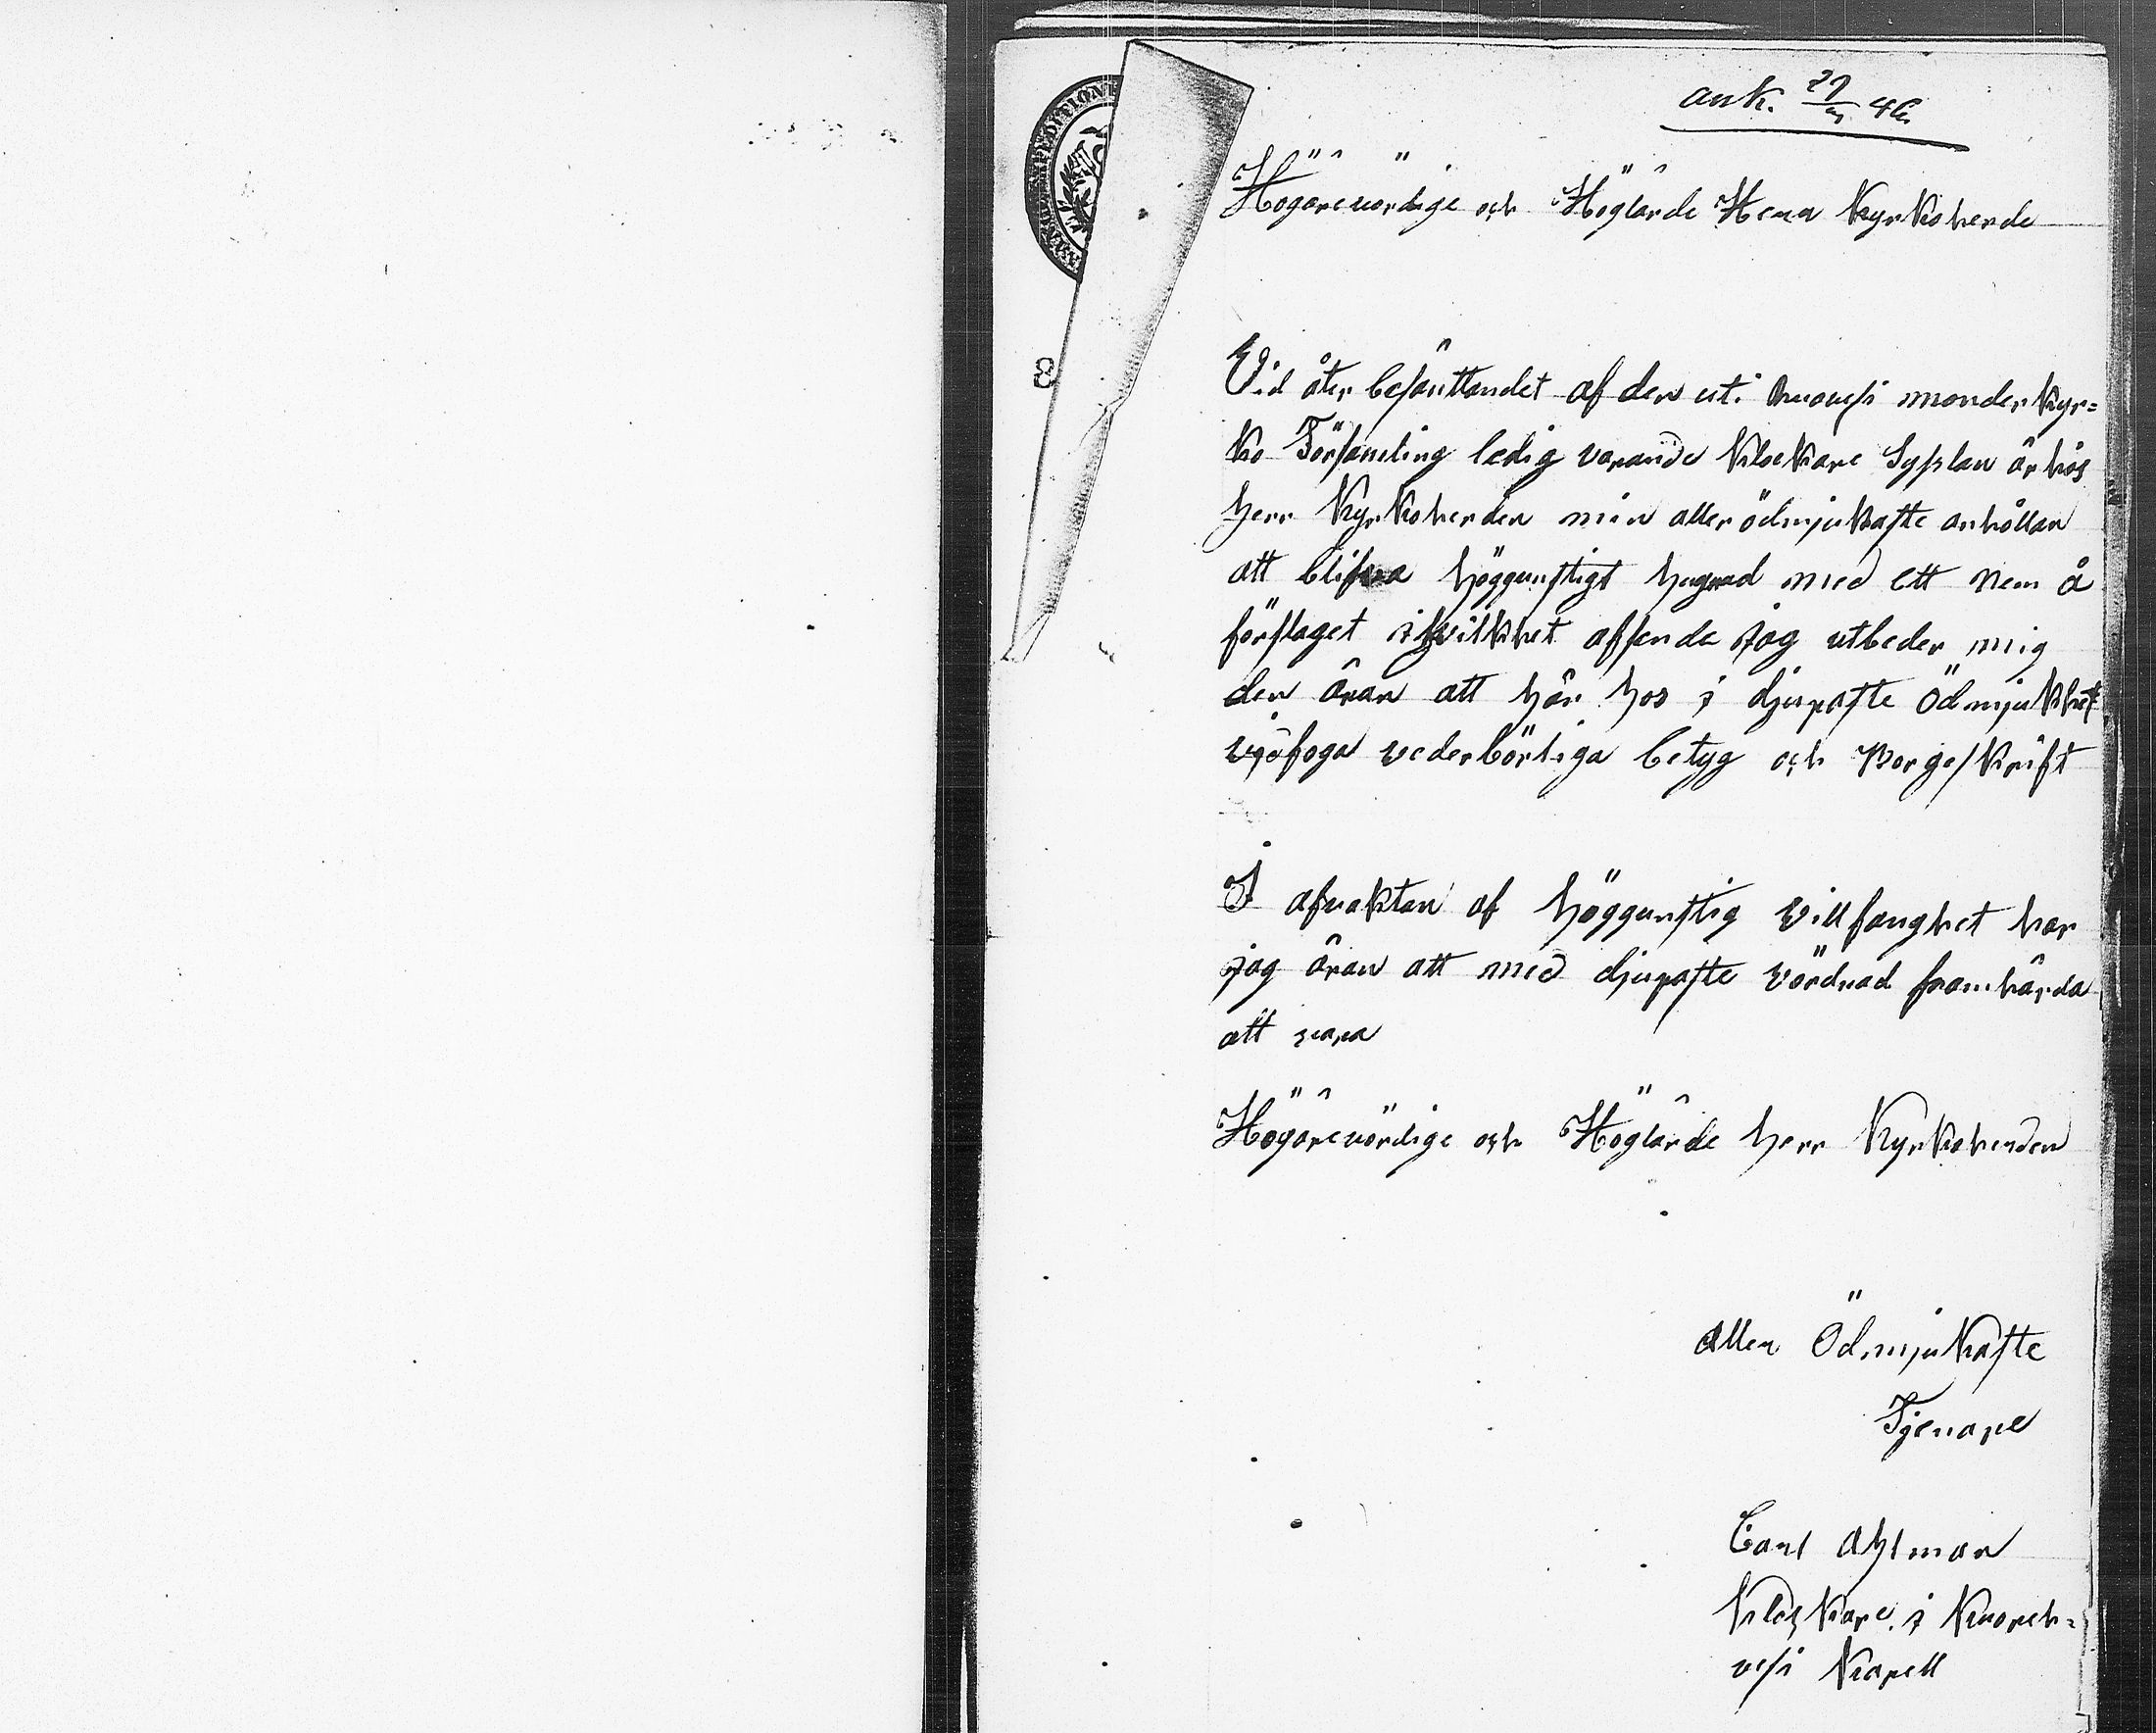 ank. 27/3 46.
Högärevördige och Höglärde Herra Kyrkoherde
Vid åter besättandet af den uti Ruovesi moderkyr=
ko Församling ledig varande Klockare Sysslan är hos
Herr Kyrkoherden min aller ödmjukaste anhållan
att blifva höggunstigt hugnad med ett rum å
förslaget i hvilkket afseende jag utbeder mig
den äran att här hos i djupaste Ödmjukhet
vederbörliga betyg och Borgesskrift
I afvaktan af höggunstig Villfarighet har
jag äran att med djupaste vördnad framhärda
att vara
Högärevördige och Höglärde Herr Kyrkoherden
aller Ödmjukaste
Tjenare
Carl Ahlman
Klockare i Kuoreh=
vesi Kapell